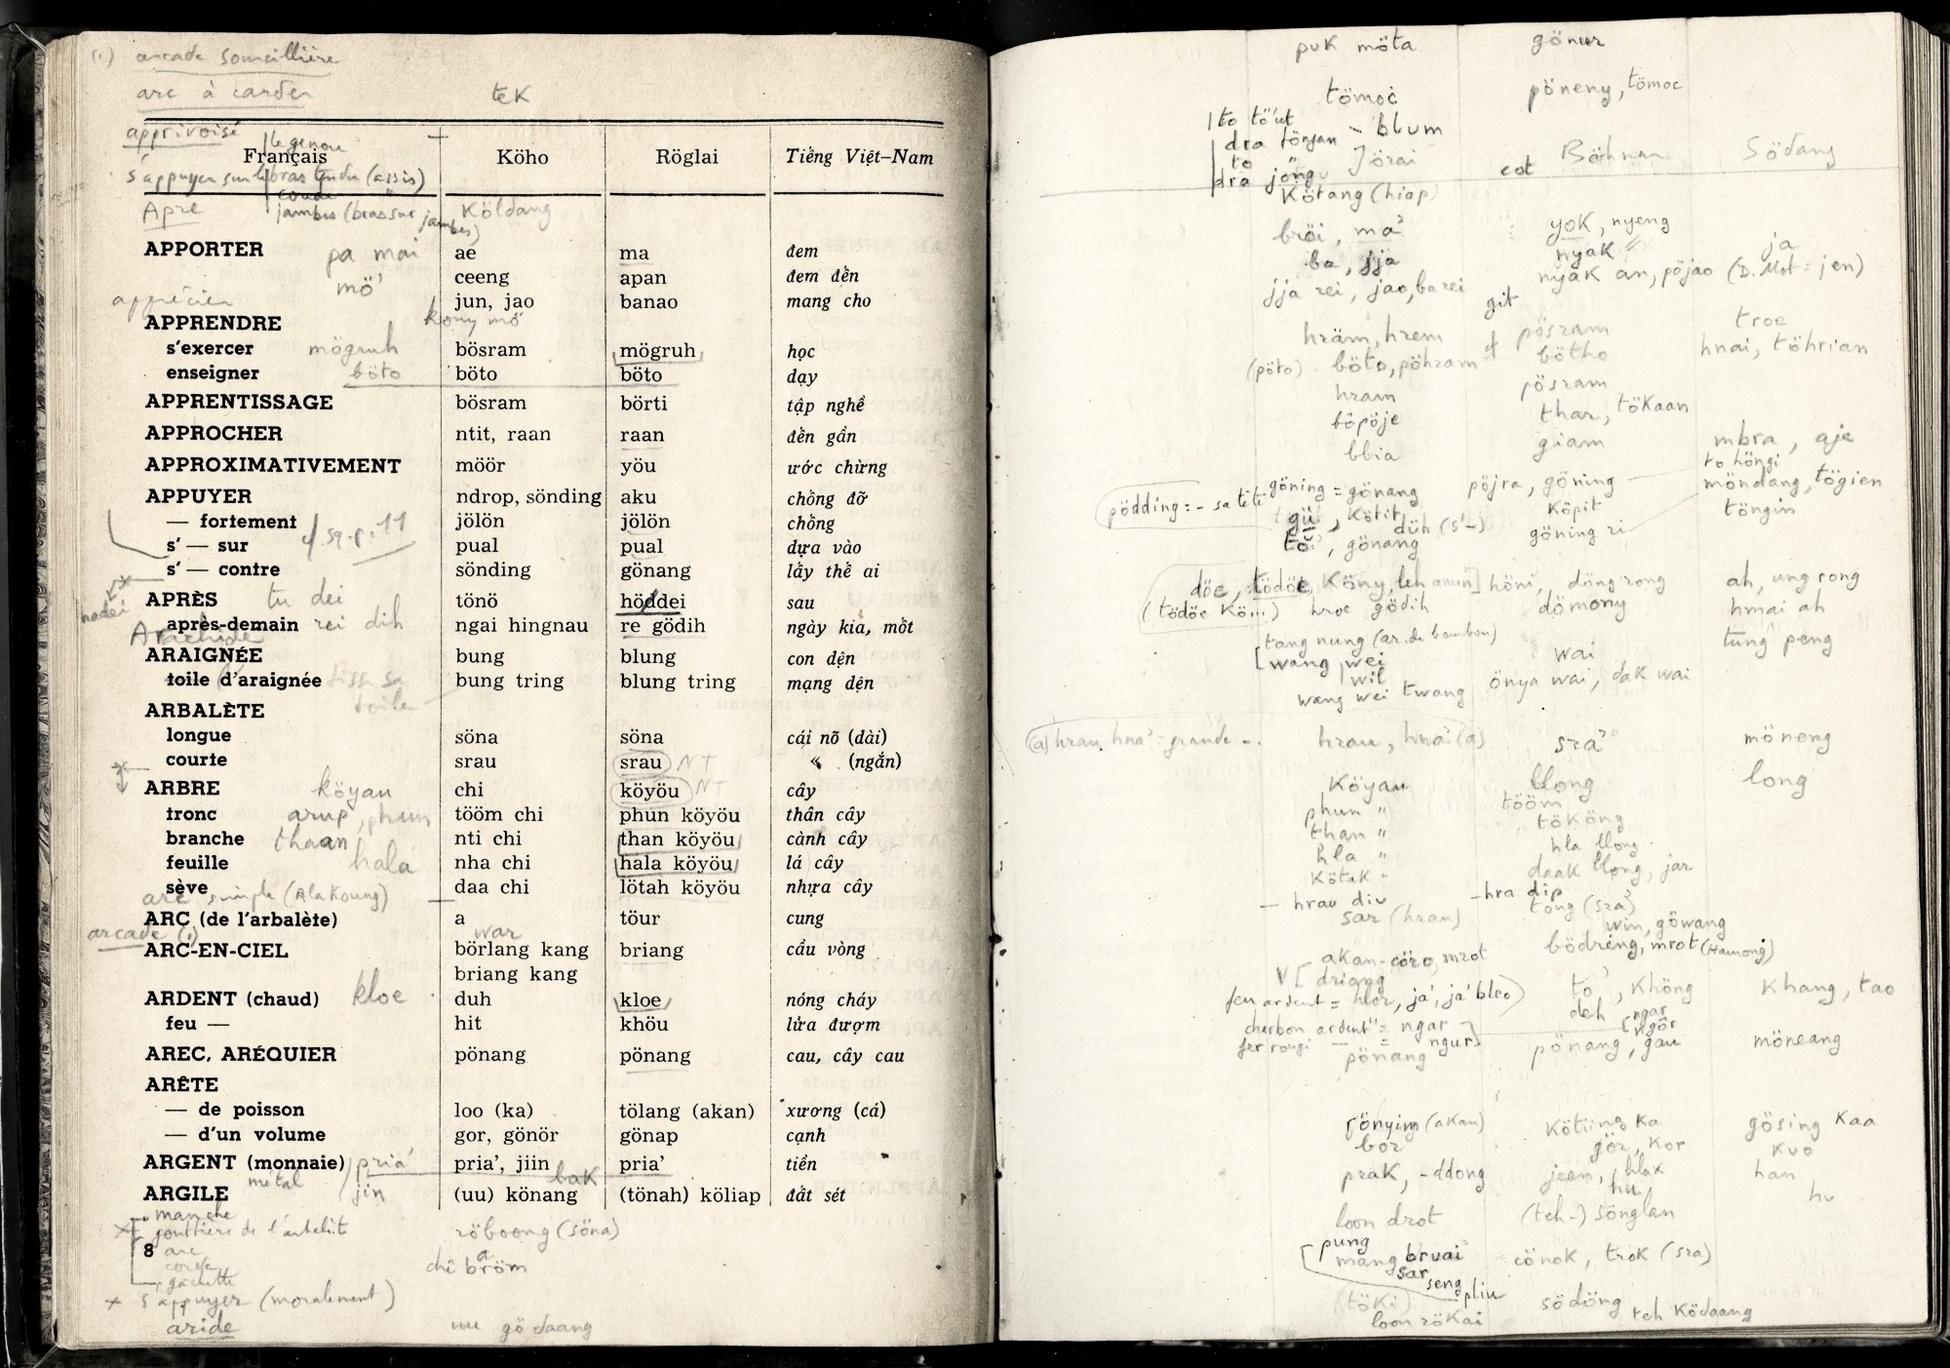 (1) arcade sourcillière
arc à carder tek
apprivoisé
le genou
Français Köho Röglai Tiếng Việt-Nam
s'appuyer sur le bras tendu (assis)
coude
Apre jambes (bras sur jambes) Köldang
APPORTER pa mai ae ma đem
mö' ceeng apan đem đến
apprécier jun, jao banao mang cho
APPRENDRE kony mö'
s'exercer mögruh bösram mögruh học
enseigner böto böto böto dạy
APPRENTISSAGE bösram börti tập nghề
APPROCHER ntit, raan raan đến gần
APPROXIMATIVEMENT möör yöu ước chừng
APPUYER ndrop, sönding aku chồng đỡ
— fortement jölön jölön chồng
cf sq. p. 11
s' — sur pual pual dựa vào
s' — contre sönding gönang lấy thế ai
hadei
APRÈS tu dei tönö höddei sau
après-demain rei dih ngai hingnau re gödih ngày kia, mốt
Arachide
ARAIGNÉE bung blung con dện
toile d'araignée bung tring blung tring mạng dện
toile
ARBALÈTE
longue söna söna cái nõ (dài)
courte srau srau NT « (ngắn)
ARBRE köyau chi köyöu NT cây
tronc arup, phun tööm chi phun köyöu thân cây
branche thaan nti chi than köyöu cành cây
feuille hala nha chi hala köyöu lá cây
sève daa chi lötah köyöu nhựa cây
arc simple (Alakoung)
ARC (de l'arbalète) a töur cung
arcade (1) war
ARC-EN-CIEL börlang kang briang cầu vòng
briang kang
ARDENT (chaud) kloe duh kloe nóng cháy
feu — hit khöu lửa đượm
AREC, ARÉQUIER pönang pönang cau, cây cau
ARÊTE
— de poisson loo (ka) tölang (akan) xương (cá)
— d'un volume gor, gönör gönap cạnh
ARGENT (monnaie) pria' pria', jiin pria' tiền
métal jin bak
ARGILE (uu) könang (tönah) köliap đất sét
manche
gouttière de l'arbalète röboong (söna)
8 arc
corde chi bröm
gâchette
+ s'appuyer (moralement)
aride uu gö daang
puk möta göner
tömoc pöneny, tömoc
to tö'ut
dra tönjan – blum
to " Jörai Böhnar Södang
dra jöng cot
Kötang (hiap)
bröi, ma' yok, nyeng
ba, jja nyak " ja
jja rei, jao, ba rei nyak an, pöjao (D. Mot = jen)
git
hräm, hrem pösram troe
(pöto) – böto, pöhram cf bötho hnai, töhrian
hram pösram
böpöje thar, tökaan
bbia giam mbra, aje
to höngi
pödding = – sa tetê göning = gönang pöjra, göning möndang, tögien
gü, kötit köpit töngin
düh (s'–)
töi', gönang göning ri
döe, tödöe, Köny, leh amün] höni, döng rong ah, ung rong
(tödöe Kö...) hroe gödih dömony hmai ah
tang nung (ar. de bambou) tung peng
[wang wei wai
wil
wang wei twang önya wai, dak wai
(a) hrau, hna' = grande –. hrau, hna' (a) sra' möneng
Köyau bloong long
phun " tööm
than " tököng
hla " hla bloong
kötak " daak bloong, jar
— hrau div –hra dip
sar (hrau) töng (sra')
win, göwang
akan-cöro, mrot bödreng, mrot (Hamong)
V [ driang
feu ardent = hlor, ja', ja' bleo to', Khöng Khang, tao
deh
charbon ardent " = ngar [ngar
fer rougi — = ngur ngör
pönang pönang, gau möneang
rönying (akan) kötiing ka gösing kaa
bor gör, kor kuo
prak, –ddong jeen, hlak han
hu hu
loon drot (teh–) sönglan
pung
mang bruai cönok, trok (sra)
sar
seng pliu
(töki) södöng teh Ködaang
loon rökai